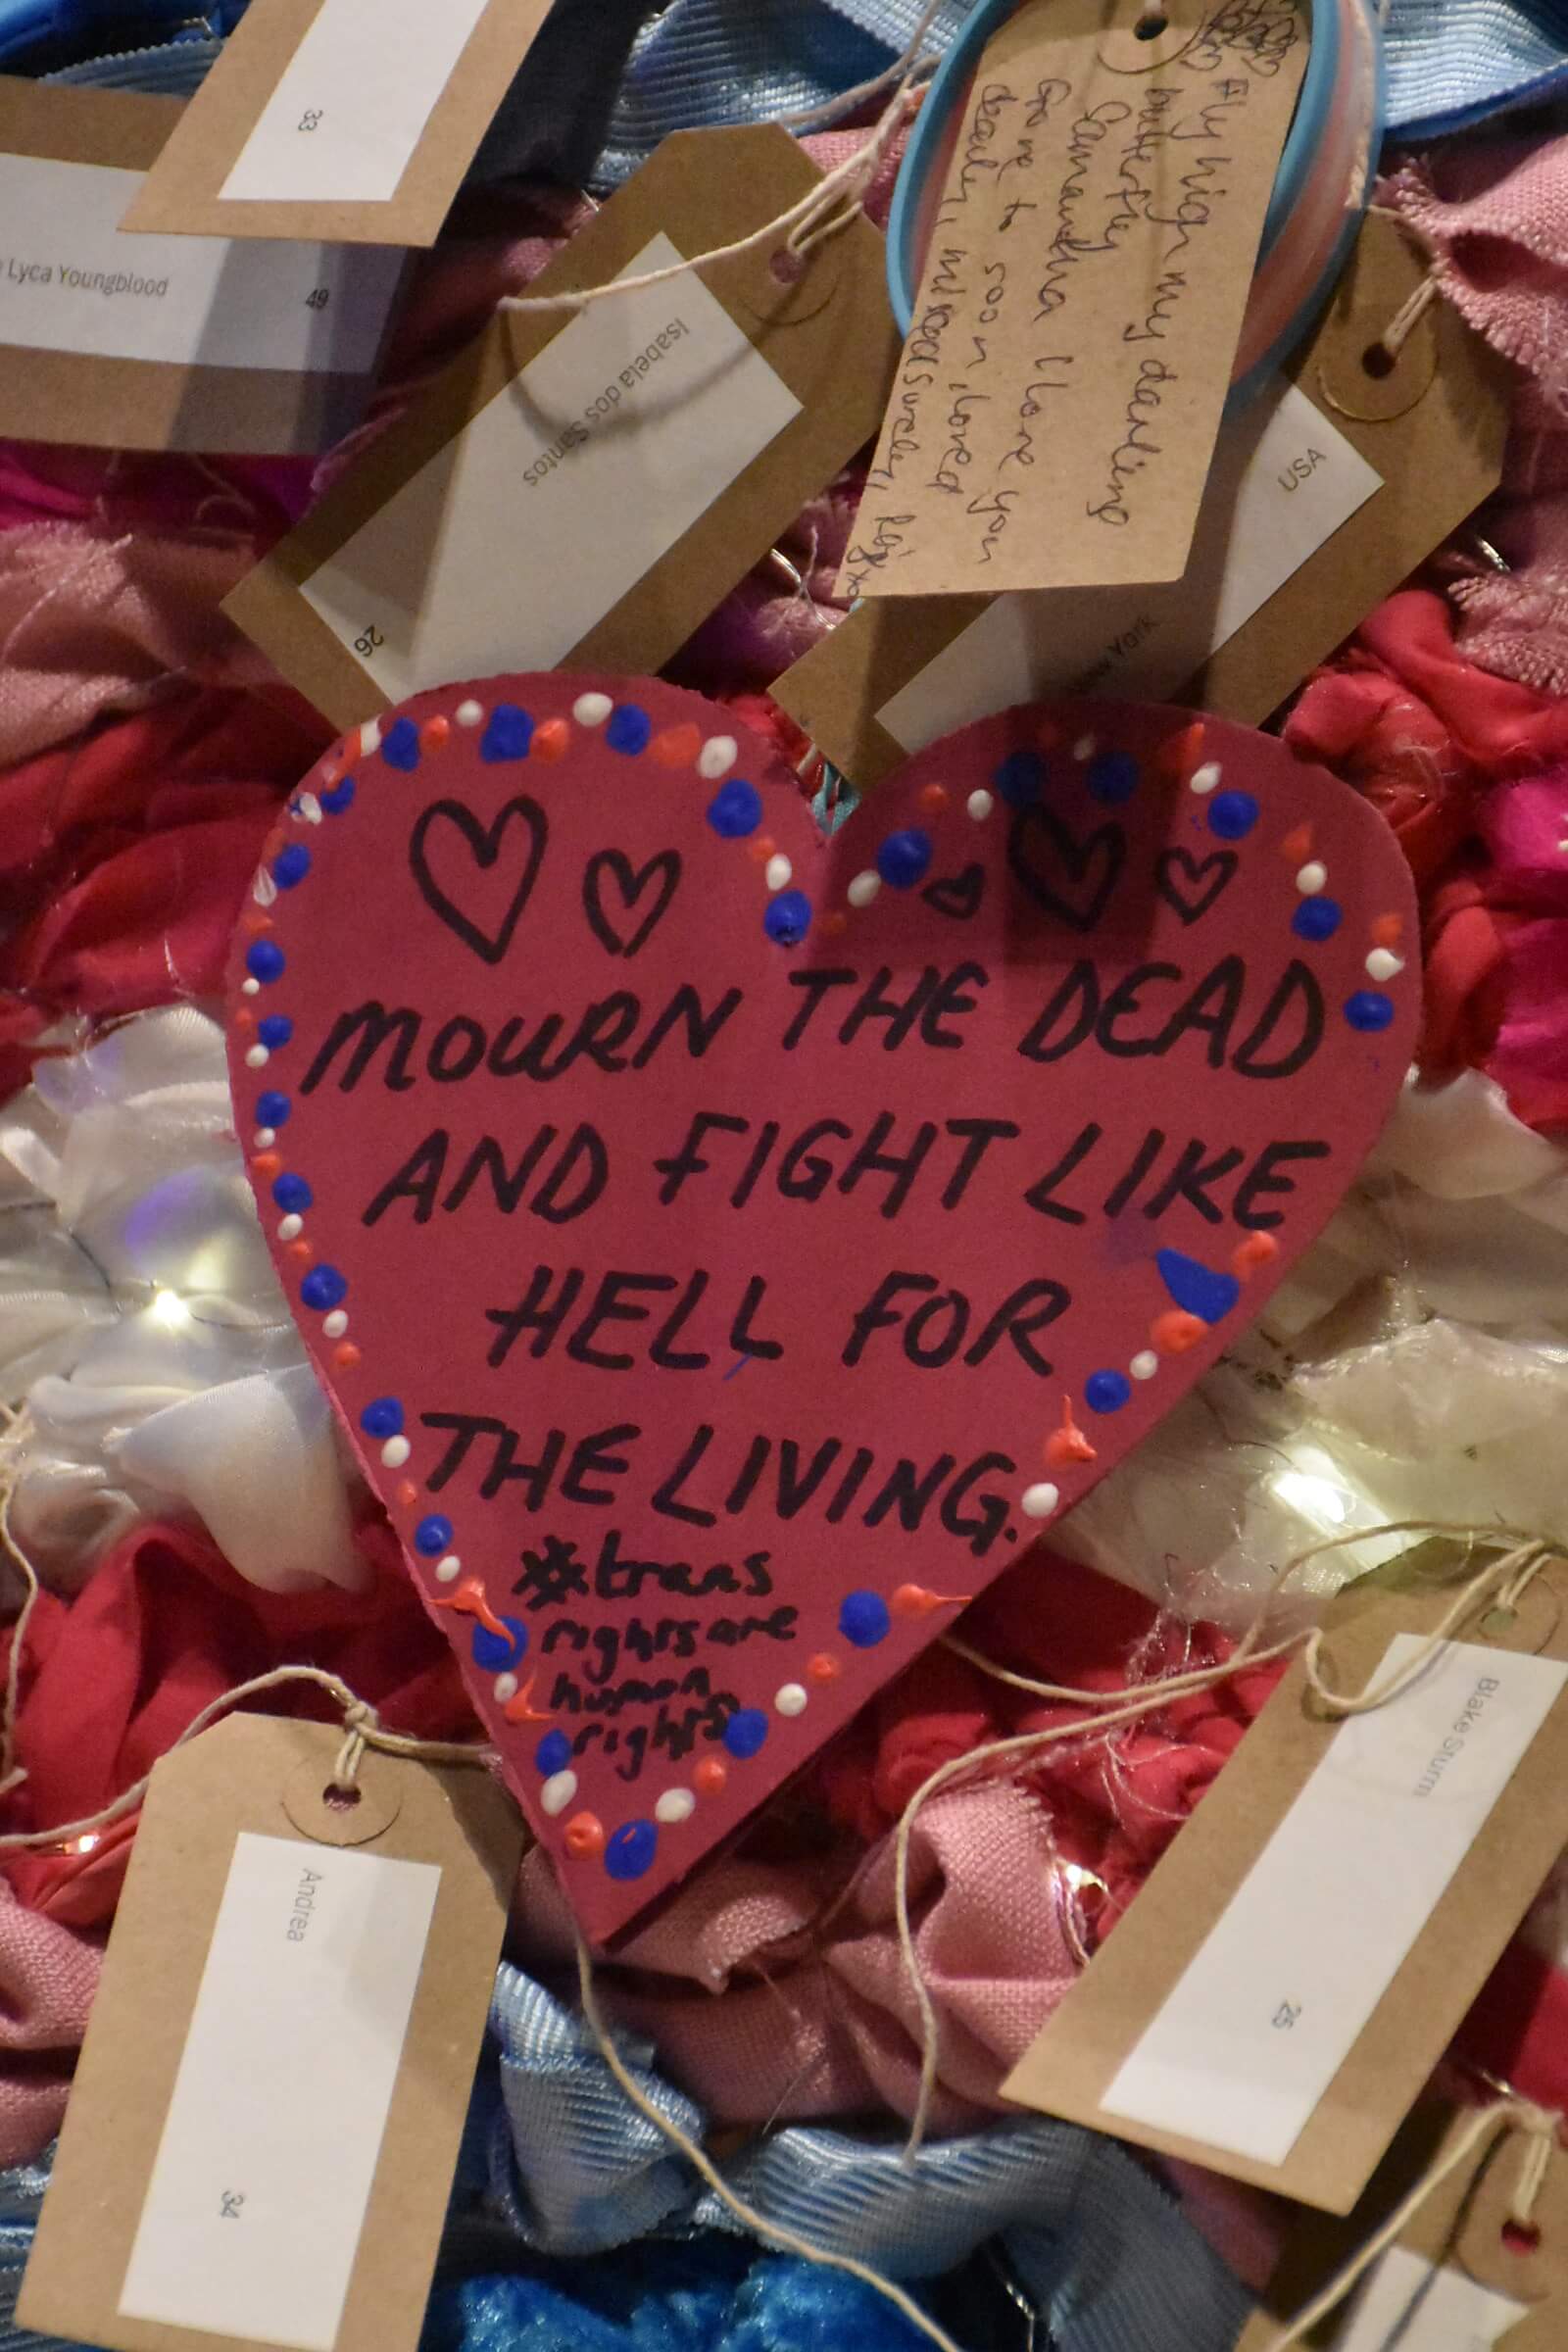 33
Lyca Youngblood
49
Isabela dos Santos
26
Fly high my darling
butterfly
Samantha I love you
Gone to soon, loved
dearly,
USA
York
MOURN THE DEAD
AND FIGHT LIKE
HELL FOR
THE LIVING.
*trans
rights are
human
rights
Blake Sturm
25
Andrea
34